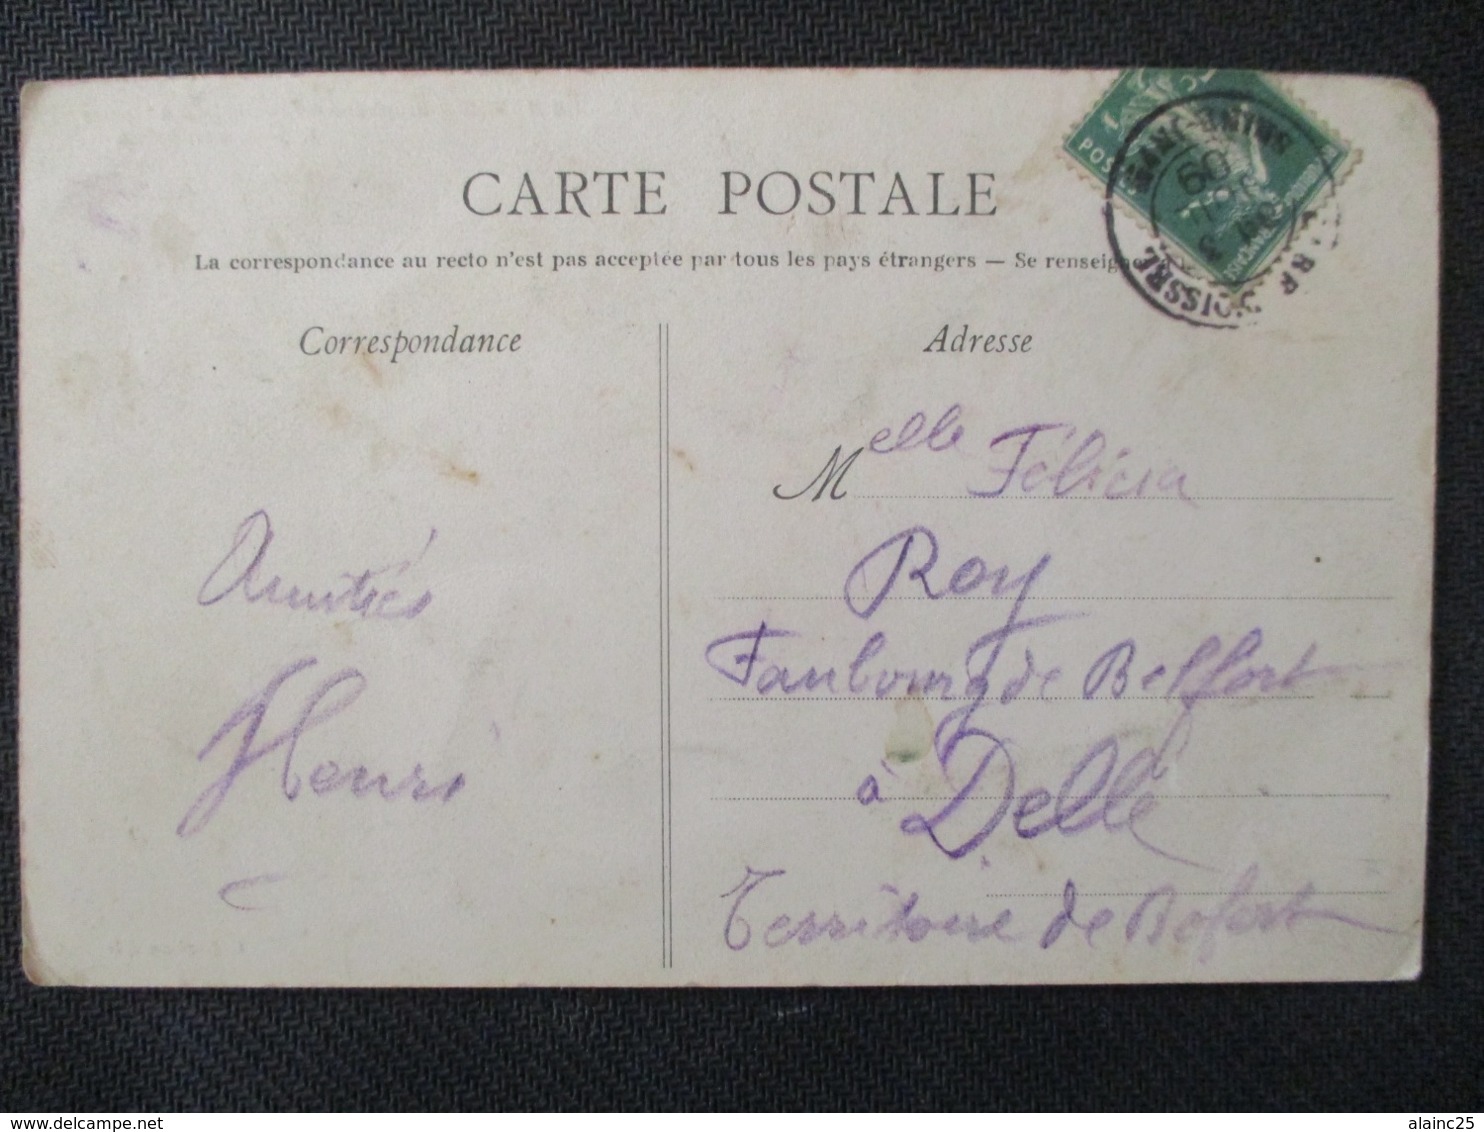 CARTE POSTALE
La correspondance au recto n'est pas acceptée par tous les pays étrangers — Se renseigne
Correspondance
Adresse
Melle Félicia
Roy
Faubourg de Belfort
à Delle
Territoire de Belfort
Amitiés
Henri
09
alainc25